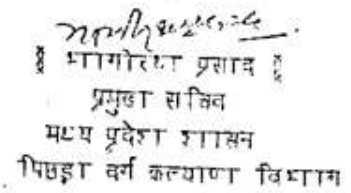 भागीरथ प्रसाद
प्रमुख सचिव
मध्य प्रदेश शासन
पिछड़ा वर्ग कल्याण विभाग